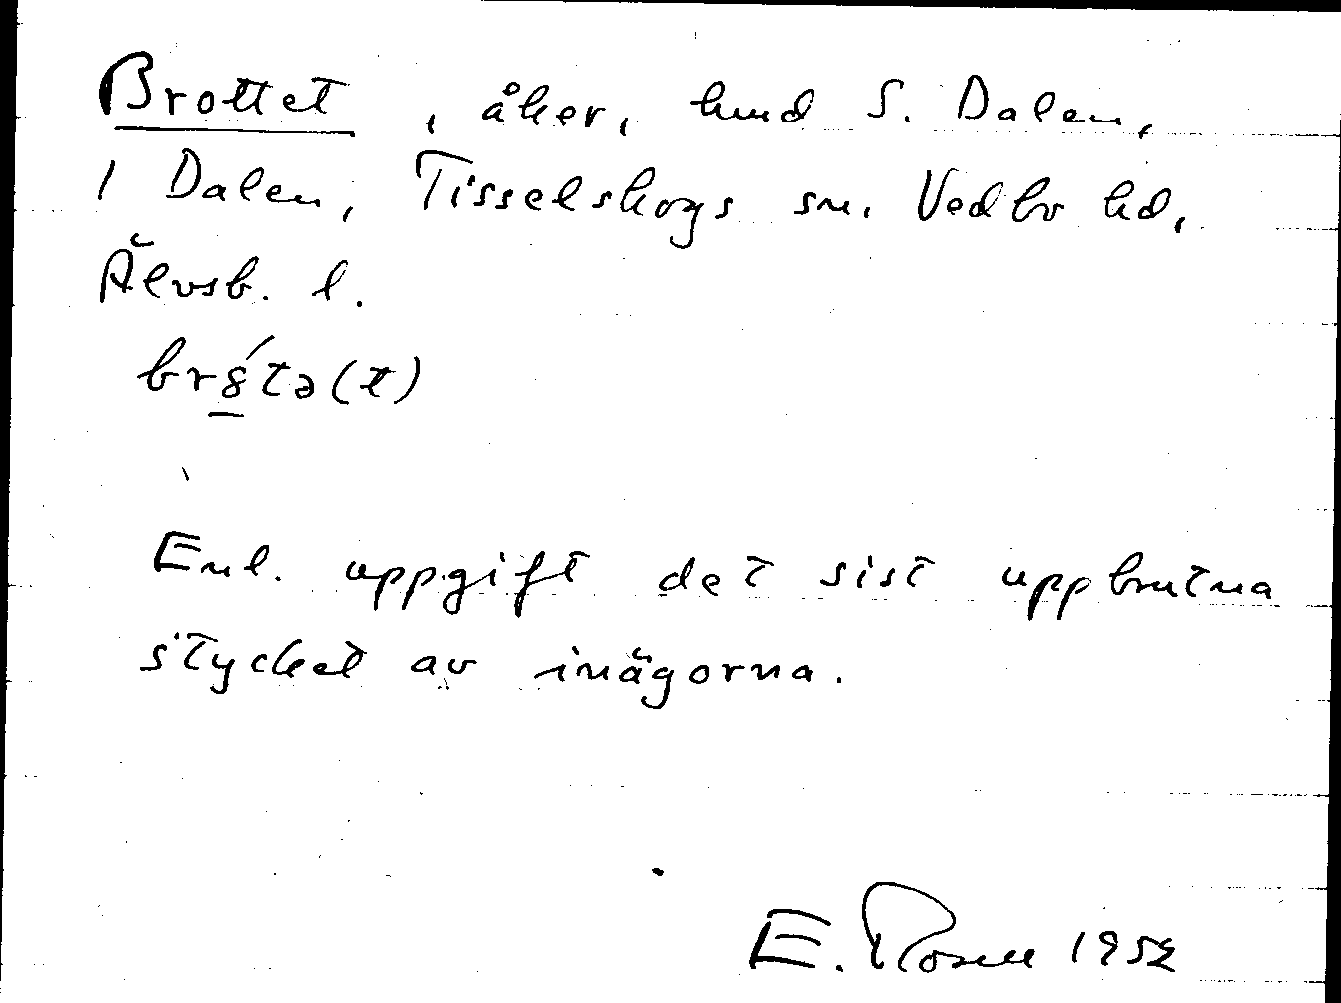 Brottet, åker, hmd S. Dalen,
1 Dalen, Tisselskogs sn. Vedbo hd,
Älvsb. l.
br8́tə(t)
Enl. uppgift det sist uppbrutna
stycket av inägorna.
E. Rosell 1952